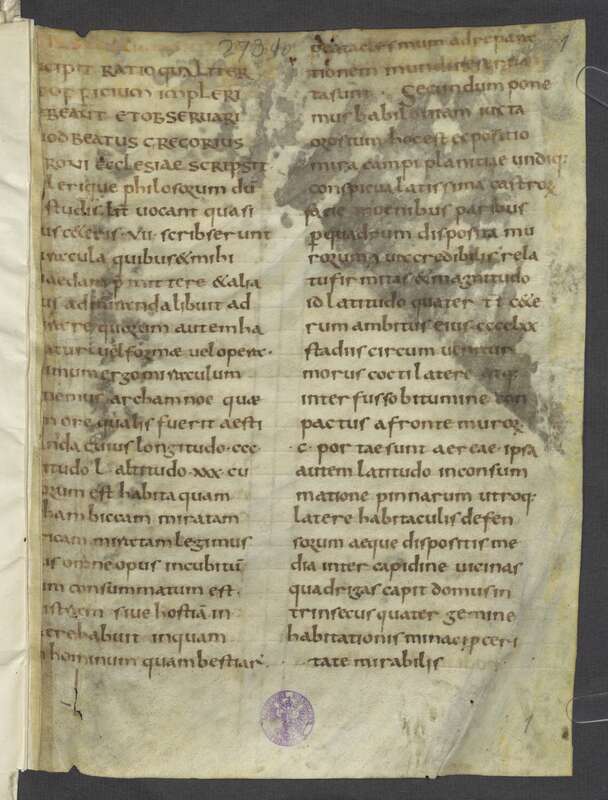 273 10
1
CIPIT RATIO QUALITER
OFFICIUM IMPLERI
BEANT ET OBSERUARI
IOD BEATUS GREGORIUS
RONI ECCLESIAE SCRIPSIT
lerique philosorum dū
studiis uocant quasi
us c&eris · VII · scribserunt
racula quibus & mihi
aedam p mittere & alia
ui admiranda libuit ad
quorum autem ha
atur uel formæ uel operæ ·
imum ergo miraculum
nemus archam noe quæ
more qualis fuerit aesti
anda cuius longitudo · ccc
titudo L · altitudo · xxx · cu
orum est habita quam
ham biccam miratam
ricam miratam legimus
is omne opus incubitū
um consummatum est ·
siue hostiā in
cte habuit inquam
hominum quam bestiar
mum ad repara
tionem mundi
ta sunt · Secundum pone
mus habiloniam iuxta
orosium hoc est expositio
mira campi planitiae undiq;
conspicua latissima castror
facie moenibus paribus
p quadrum disposita mu
rorum incredibilis rela
tu firmitas & magnitudo
id latitudo quater c&e
rum ambitus eius · cccclxx
stadiis circum uenitur
morus cocti latere atq;
inter fusso bitumine con
pactus a fronte muror
· c · portae sunt aereae · ipsa
autem latitudo in consum
matione pinnarum utroq;
latere habitaculis defen
sorum aeque dispositis me
dia inter capidine uicinas
quadrigas capit domus in
trinsecus quater gemine
habitationis minaci pceri
tate mirabilis
1